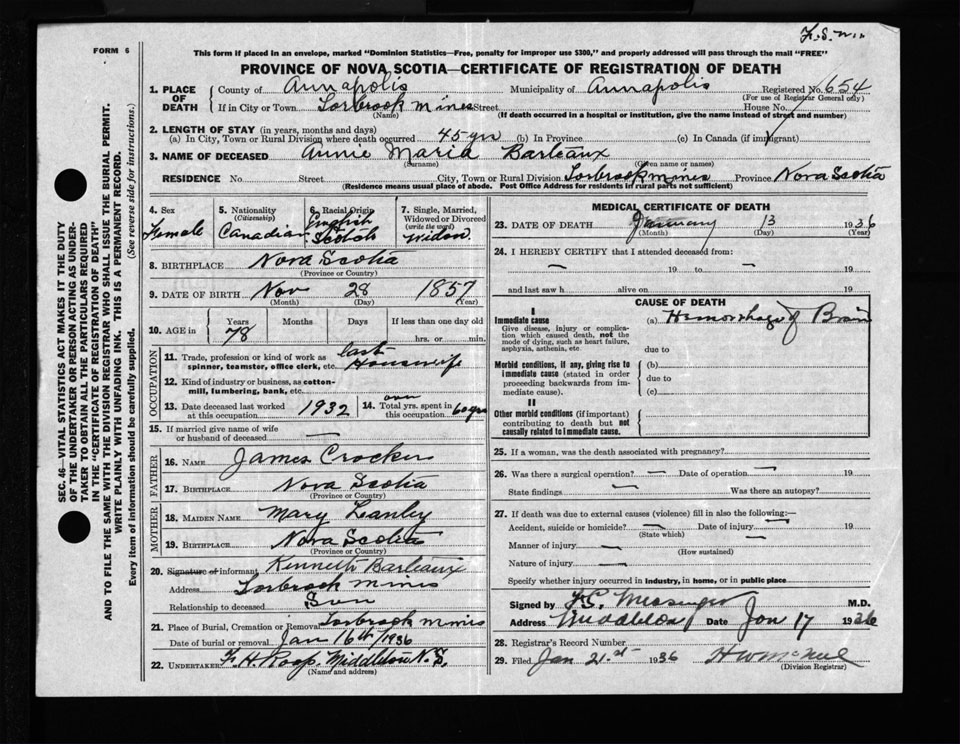 F.S.
FORM 6
This form if placed in an envelope, marked "Dominion Statistics—Free, penalty for improper use $300," and properly addressed will pass through the mail "FREE"
PROVINCE OF NOVA SCOTIA—CERTIFICATE OF REGISTRATION OF DEATH
SEC. 46—VITAL STATISTICS ACT MAKES IT THE DUTY
OF THE UNDERTAKER OR PERSON ACTING AS UNDER-
TAKER TO OBTAIN ALL THE PARTICULARS REQUIRED
IN THE "CERTIFICATE OF REGISTRATION OF DEATH"
AND TO FILE THE SAME WITH THE DIVISION REGISTRAR WHO SHALL ISSUE THE BURIAL PERMIT.
WRITE PLAINLY WITH UNFADING INK. THIS IS A PERMANENT RECORD.
Every item of information should be carefully supplied. (See reverse side for instructions.)
1. PLACE OF DEATH County of Annapolis Municipality of Annapolis Registered No. 654
(For use of Registrar General only)
If in City or Town Torbrook Mines Street House No.
(Name) (If death occurred in a hospital or institution, give the name instead of street and number)
2. LENGTH OF STAY (in years, months and days)
(a) In City, Town or Rural Division where death occurred 45 yrs (b) In Province (c) In Canada (if immigrant)
3. NAME OF DECEASED Annie Maria Barteaux
(Surname) (Given name or names)
RESIDENCE No. Street City, Town or Rural Division Torbrook Mines Province Nova Scotia
(Residence means usual place of abode. Post Office Address for residents in rural parts not sufficient)
4. Sex Female
5. Nationality (Citizenship) Canadian
6. Racial Origin English Scotch
7. Single, Married, Widowed or Divorced (write the word) Widow
8. BIRTHPLACE Nova Scotia
(Province or Country)
9. DATE OF BIRTH Nov 28 1857
(Month) (Day) (Year)
10. AGE in Years 78 Months Days If less than one day old hrs. or min.
OCCUPATION
11. Trade, profession or kind of work as spinner, teamster, office clerk, etc. Housewife
12. Kind of industry or business, as cotton-mill, lumbering, bank, etc.
13. Date deceased last worked at this occupation 1932 14. Total yrs. spent in this occupation over 60 yrs
15. If married give name of wife or husband of deceased —
FATHER
16. NAME James Crocker
17. BIRTHPLACE Nova Scotia
(Province or Country)
MOTHER
18. MAIDEN NAME Mary
19. BIRTHPLACE Nova Scotia
(Province or Country)
20. Signature of informant Kenneth Barteaux
Address Torbrook Mines
Relationship to deceased Son
21. Place of Burial, Cremation or Removal Torbrook Mines
Date of burial or removal Jan 16th/1936
22. UNDERTAKER F. H. Roop. Middleton N.S.
(Name and address)
MEDICAL CERTIFICATE OF DEATH
23. DATE OF DEATH January 13 1936
(Month) (Day) (Year)
24. I HEREBY CERTIFY that I attended deceased from:
— 19 to — 19
and last saw h alive on 19
CAUSE OF DEATH
I
Immediate cause (a) Hemorrhage of Brain
Give disease, injury or complication which caused death, not the mode of dying, such as heart failure, asphyxia, asthenia, etc.
due to
Morbid conditions, if any, giving rise to immediate cause (stated in order proceeding backwards from immediate cause). (b)
due to
(c)
II
Other morbid conditions (if important) contributing to death but not causally related to immediate cause.
25. If a woman, was the death associated with pregnancy?
26. Was there a surgical operation? — Date of operation — 19
State findings — Was there an autopsy?
27. If death was due to external causes (violence) fill in also the following:—
Accident, suicide or homicide? — Date of injury — 19
(State which)
Manner of injury —
(How sustained)
Nature of injury —
Specify whether injury occurred in industry, in home, or in public place
Signed by Messenger M.D.
Address Middleton Date Jan 17 1936
28. Registrar's Record Number
29. Filed Jan 21st 1936 H W McNeil
(Division Registrar)